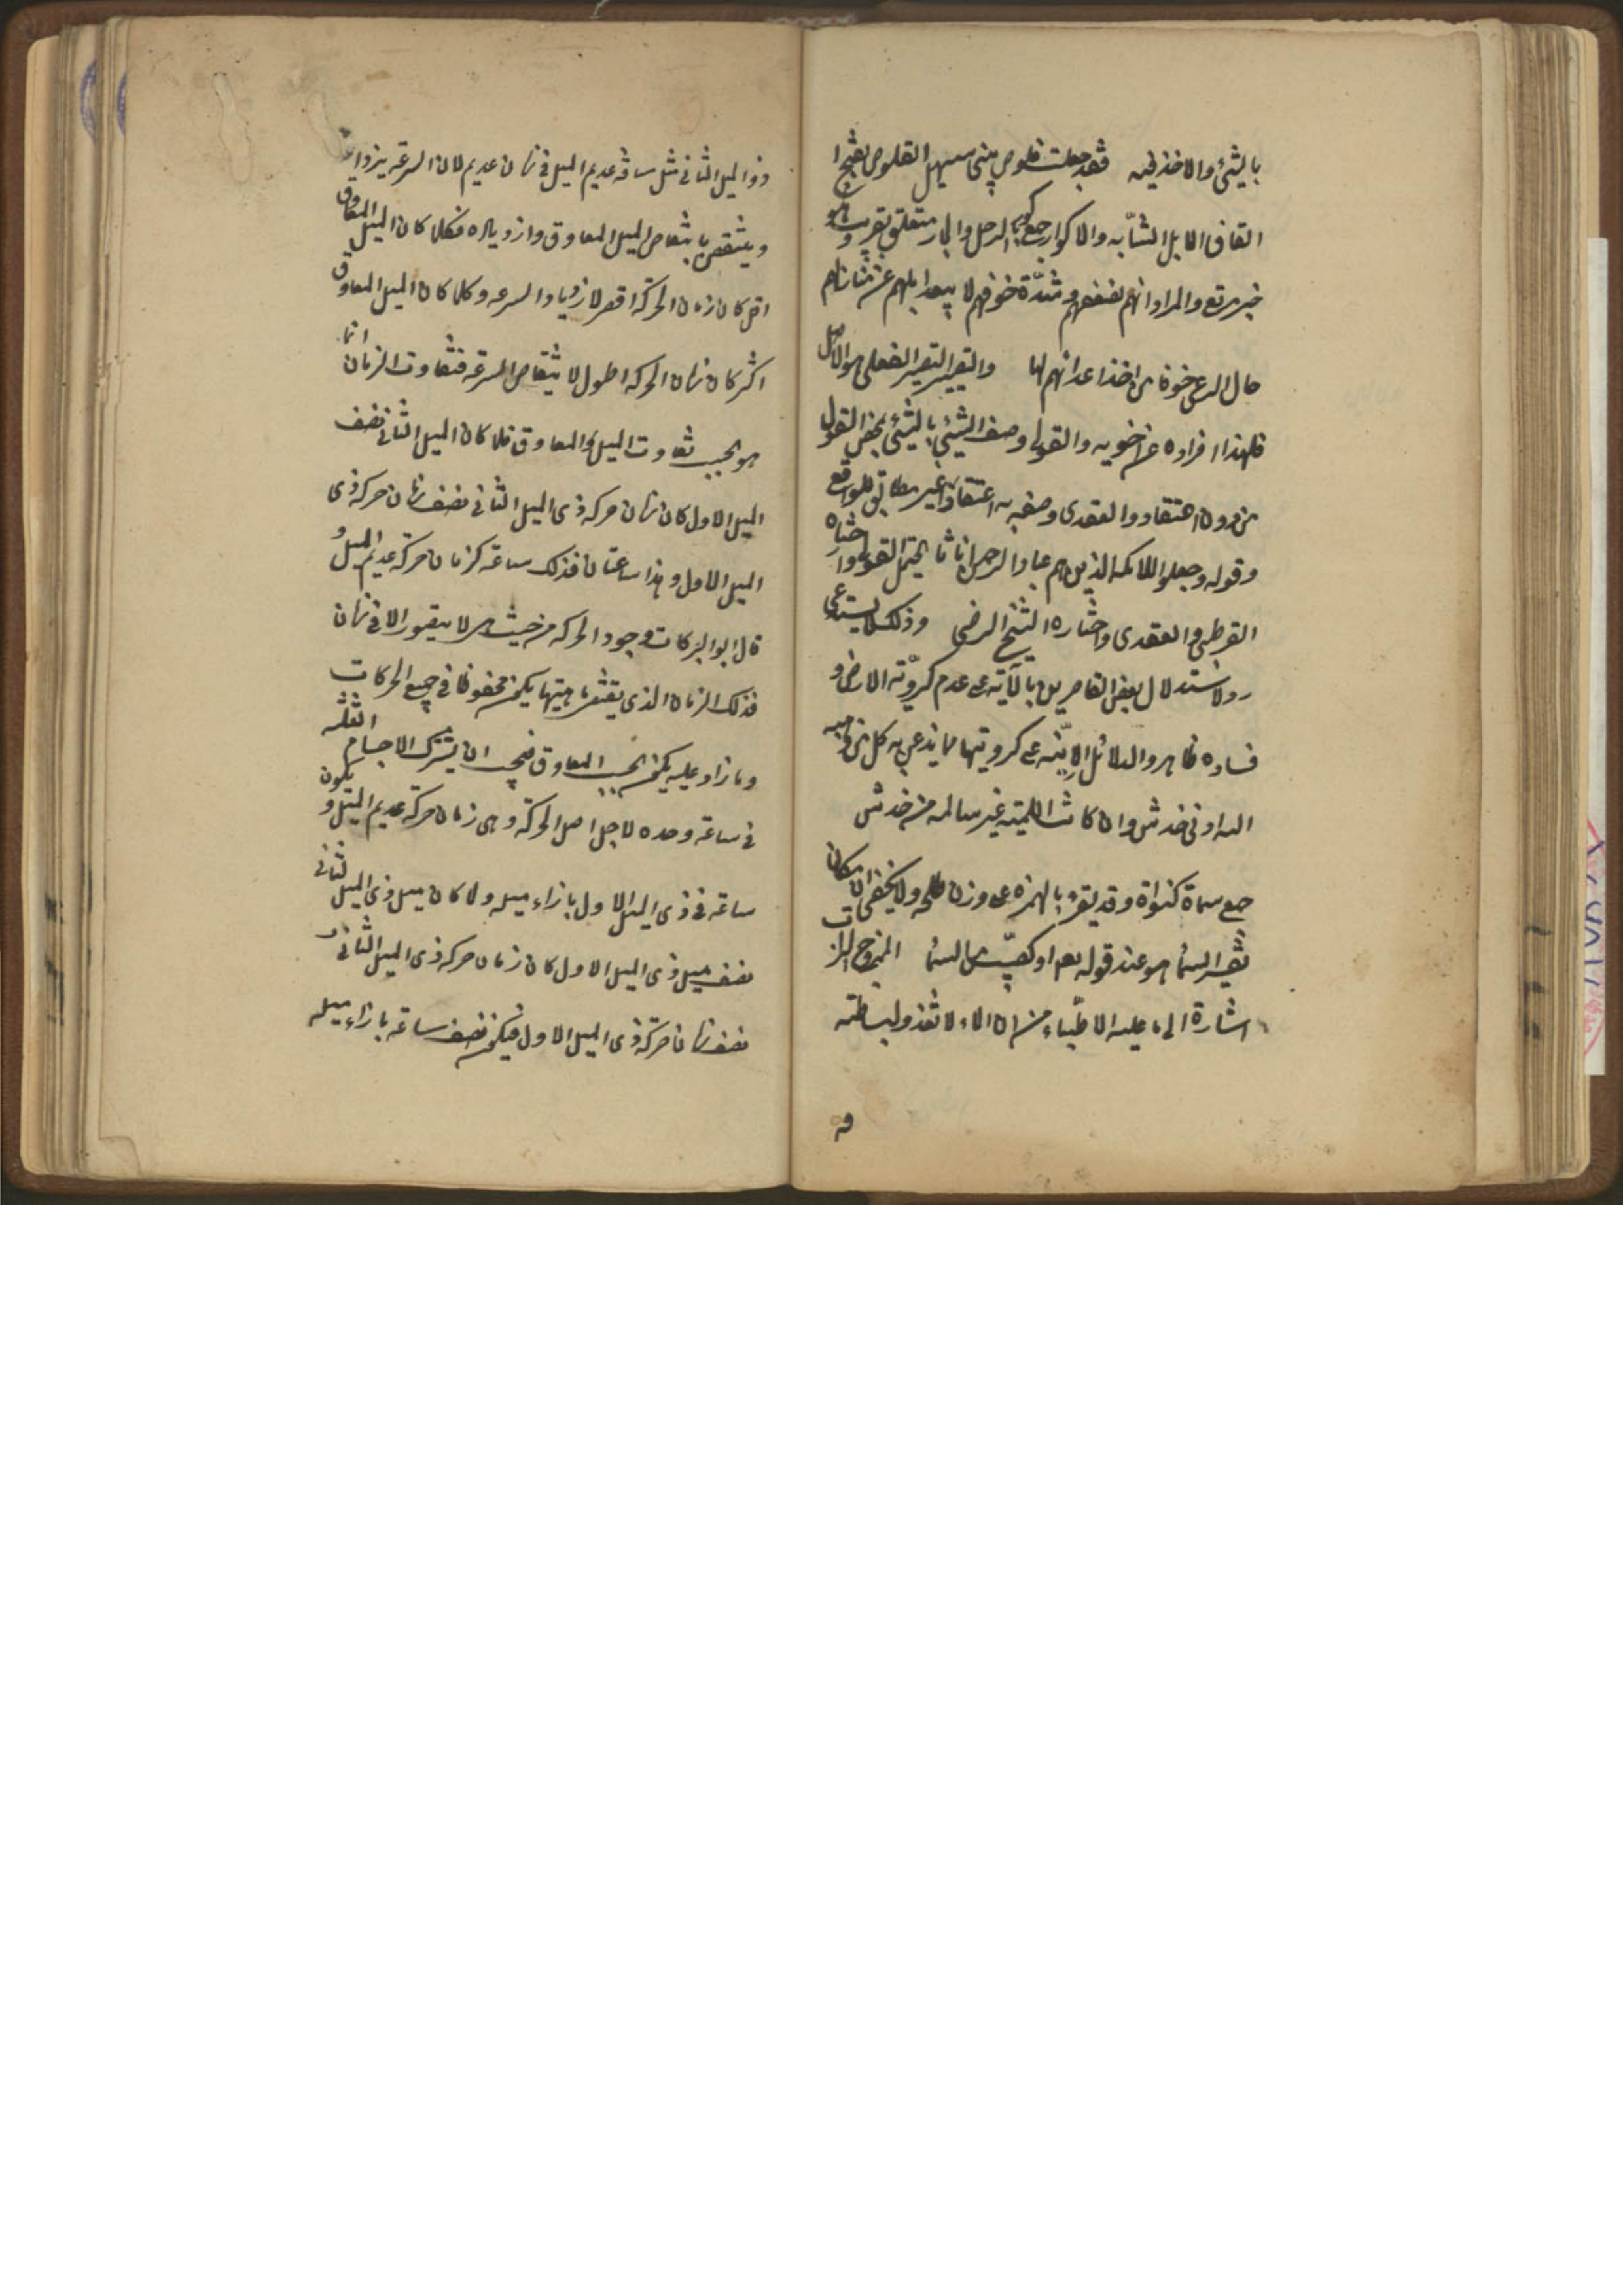 بالشئ والاخذ فيه فقد جعلت قلوص بنى سهيل القلوص بفتح
القاف الابل الشابه والاكوار جمع كور الرحل والجار متعلق بقريب وهو
خبر مرتع والمراد انهم لضعفهم وشدة خوفهم لا يبعد ابلهم عن منازلهم
حال الرعى خوفا من اخذ اعدائهم لها والتصيير الفعلى هو الاصل
فلهذا افراده عن اخويه والقولى وصف الشئ بالشئ بمحض القول
من دون اعتقاد والعقدى وصفه به اعتقادا غير مطابق للواقع
وقوله وجعلوا الملائكه الذين هم عباد الرحمن اناثا يحتمل القولى واختاره
القرطبى والعقدى واختاره الشيخ الرضى وذلك لا يستدعى
رد لاستدلال بعض القاصرين بالآية على عدم كروية الارض و
فساده ظاهر والدلائل الانيه على كرويتها مما يذعن به كل من وجبه
اله ادنى خدش وان كانت اللميه غير سالمه من خدش
جمع سماة كنواة وقد يقرء بالهمزه على وزن طلحه ولا يخفى ان مكان
تفسير السماء هو عند قوله تعالى او كصيب من السماء الممزوج بالتراب
اشارة الى ما عليه الاطباء من ان الماء لا تغذو لبساطته
ذو الميل الثانى مثل مسافة عديم الميل فى زمان عديم لان السرعة يزداد
وينتقص بانتقاص الميل المعاوق وازدياده فكلما كان الميل المعاوق
اقل كان زمان الحركة اقصر لازدياد السرعه وكلما كان الميل المعاوق
اكثر كان زمان الحركه اطول لانتقاص السرعه فتفاوت الزمان انما
هو بحسب تفاوت الميل المعاوق فلما كان الميل الثانى نصف
الميل الاول كان زمان حركه ذى الميل الثانى نصف زمان حركه ذى
الميل الاول وهذا ساعتان فذلك ساعة كزمان حركة عديم الميل و
قال ابو البركات وجود الحركه من حيث هى لا يتصور الا فى زمان
فذلك الزمان الذى يقتضى ماهيتها يكون محفوظا فى جميع الحركات
وما زاد عليه يكون بحسب المعاوق فيجب ان يشترك الاجسام الثلثه
فى ساعة وحده لاجل اصل الحركة وهى زمان حركة عديم الميل ويكون
ساعة فى ذى الميل الاول بازاء ميله ولما كان ميل ذى الميل الثانى
نصف ميل ذى الميل الاول كان زمان حركه ذى الميل الثانى
نصف زمان حركة ذى الميل الاول فيكون نصف ساعة بازاء ميله